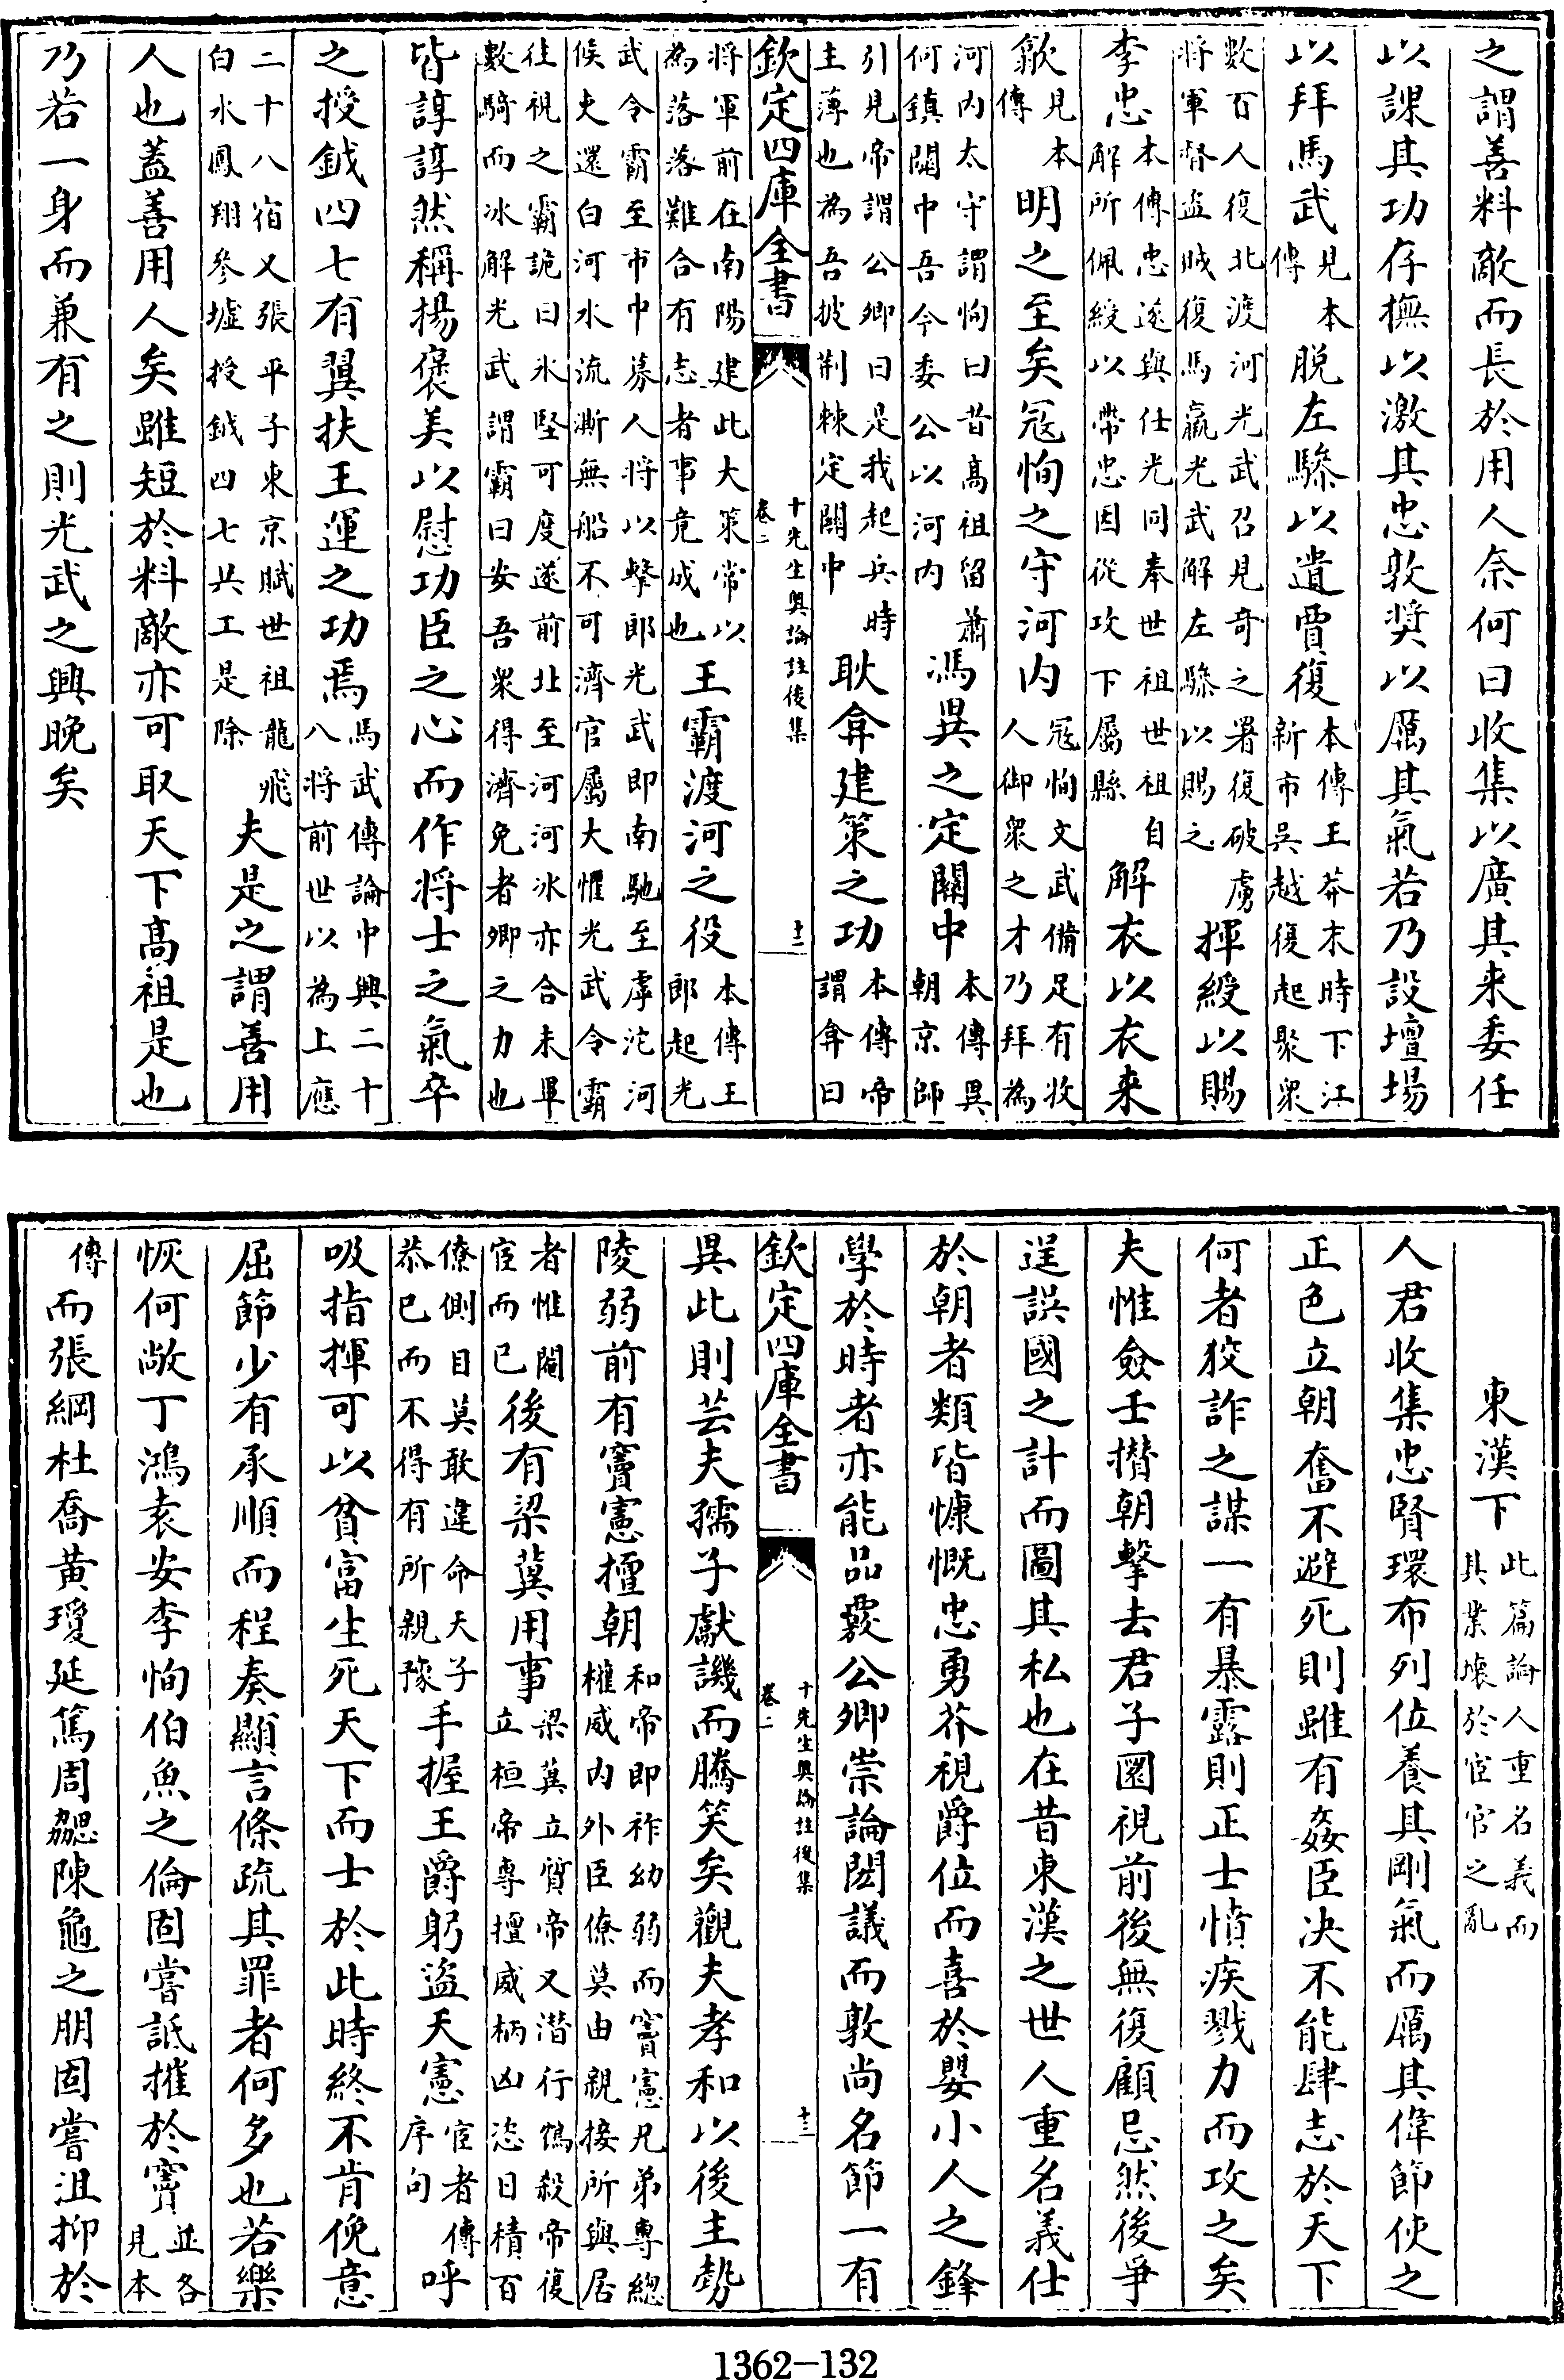 之謂善料敵而長於用人奈何曰收集以廣其来委任
以課其功存撫以激其忠敦奬以厲其氣若乃設壇場
以拜馬武見本傳脱左驂以遺賈復本傳王莽末時下江新市吳越復起聚衆
數百人復北渡河光武召見奇之署復破虜將軍督盗賊復馬羸光武解左驂以賜之揮綬以賜
李忠本傳忠遂與任光同奉世祖世祖自解所佩綬以帶忠因從攻下屬縣解衣以衣来
歙見本傳明之至矣冦恂之守河内冦恂文武備足有牧人御衆之才乃拜為
河内太守謂恂曰昔髙祖留蕭何鎮闗中吾今委公以河内馮異之定闗中本傳異朝京師
引見帝謂公卿曰是我起兵時主薄也為吾披荆棘定闗中耿弇建策之功本傳帝謂弇曰
欽定四庫全書 卷二 十先生奥論註後集 十二
將軍前在南陽建此大策常以為落落難合有志者事竟成也王霸渡河之役本傳王郎起光
武令霸至市中募人將以擊郎光武即南馳至虖沱河候吏還白河水流澌無船不可濟官屬大懼光武令霸
往視之霸詭曰氷堅可度遂前北至河河冰亦合未畢數騎而冰解光武謂霸曰安吾衆得濟免者卿之力也
皆諄諄然稱揚褒美以慰功臣之心而作將士之氣卒
之授鉞四七有翼扶王運之功焉馬武傳論中興二十八將前世以為上應
二十八宿又張平子東京賦世祖龍飛白水鳳翔參墟授鉞四七共工是除夫是之謂善用
人也蓋善用人矣雖短於料敵亦可取天下髙祖是也
乃若一身而兼有之則光武之興晚矣
東漢下此篇論人重名義而其業壊於宦官之亂
人君收集忠賢環布列位養其剛氣而厲其偉節使之
正色立朝奮不避死則雖有姦臣决不能肆志於天下
何者狡詐之謀一有暴露則正士憤疾戮力而攻之矣
夫惟僉壬攅朝擊去君子圜視前後無復顧忌然後爭
逞誤國之計而圖其私也在昔東漢之世人重名義仕
於朝者類皆慷慨忠勇芥視爵位而喜於嬰小人之鋒
學於時者亦能品覈公卿崇論閎議而敦尚名節一有
欽定四庫全書 卷二 十先生奥論註後集 十三
異此則芸夫孺子獻譏而騰笑矣觀夫孝和以後主勢
陵弱前有竇憲擅朝和帝即祚幼弱而竇憲兄弟專總權威内外臣僚莫由親接所與居
者惟閹宦而已後有梁冀用事梁冀立質帝又潛行鴆殺帝復立桓帝專擅威柄凶恣日積百
僚側目莫敢違命天子恭已而不得有所親豫手握王爵躬盜天憲宦者傳序句呼
吸指揮可以貧富生死天下而士於此時終不肯俛意
屈節少有承順而程奏顯言條疏其罪者何多也若樂
恢何敞丁鴻袁安李恂伯魚之倫固嘗詆摧於竇並各見本
傳而張綱杜喬黄瓊延篤周勰陳龜之朋固嘗沮抑於
1362—132